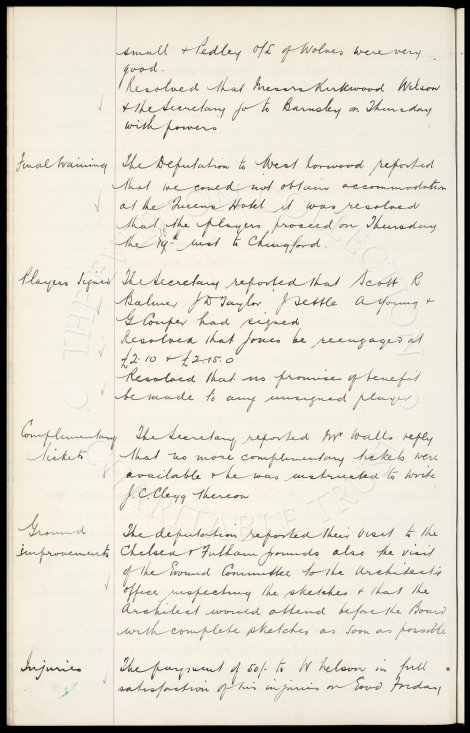 small & Pedley O/L of Wolves were very
good.
Resolved that Messrs Kirkwood Wilson
& the Secretary go to Barnsley on Thursday
with powers
Final training The Deputation to West Norwood reported
that we could not obtain accommodation
at the Queens Hotel it was resolved
that the players proceed on Thursday
the 18th inst to Chingford.
Players Signed The Secretary reported that Scott R
Balmer J D Taylor J Settle A Young &
G Couper had signed
Resolved that Jones be reengaged at
£2.10 & £2.15.0
Resolved that no promises of benefit
be made to any unsigned player
Complementary The Secretary reported Mr Walls reply
tickets that no more complementary tickets were
available & he was instructed to write
J.C. Clegg thereon
Ground The deputation reported their visit to the
improvements Chelsea & Fulham grounds also the visit
of the Ground Committee to the Architects
office inspecting the sketches & that the
Architect would attend before the Board
with complete sketches as soon as possible
Injuries The payment of 50/- to W Nelson in full
satisfaction of his injuries on Good Friday,